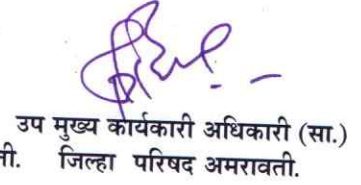 उप मुख्य कार्यकारी अधिकारी (सा.)
ती. जिल्हा परिषद अमरावती.